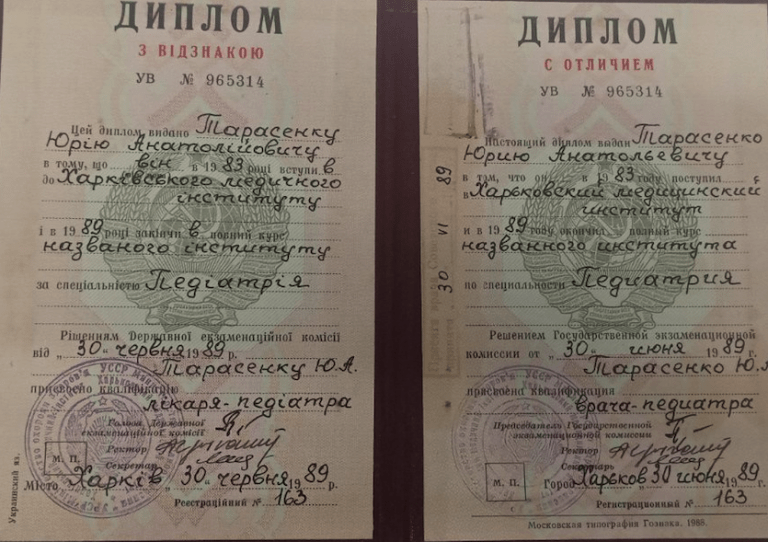 ДИПЛОМ
З ВІДЗНАКОЮ
УВ № 965314
Цей диплом видано Тарасенку
Юрію Анатолійовичу
в тому, що він в 1983 році вступив
до Харківського медичного
інституту
і в 1989 році закінчив повний курс
названого інституту
за спеціальністю Педіатрія
Рішенням Державної екзаменаційної комісії
від „30“ червня 1989 р.
Тарасенку Ю.А.
присвоєно кваліфікацію
лікаря-педіатра
Голова Державної
екзаменаційної комісії
Ректор
Секретар
М. П.
Місто Харків „30“ червня 1989 р.
Реєстраційний № 163
Украинский яз.
ДИПЛОМ
С ОТЛИЧИЕМ
УВ № 965314
Настоящий диплом выдан Тарасенко
Юрию Анатольевичу
в том, что он в 1983 году поступил
в Харьковский медицинский
институт
и в 1989 году окончил полный курс
названного института
по специальности Педиатрия
Решением Государственной экзаменационной
комиссии от „30“ июня 1989 г.
Тарасенко Ю.А.
присвоена квалификация
врача-педиатра
Председатель Государственной
экзаменационной комиссии
Ректор
Секретарь
М. П.
Город Харьков 30 июня 1989 г.
Регистрационный № 163
Московская типография Гознака. 1988.
30 VI 89